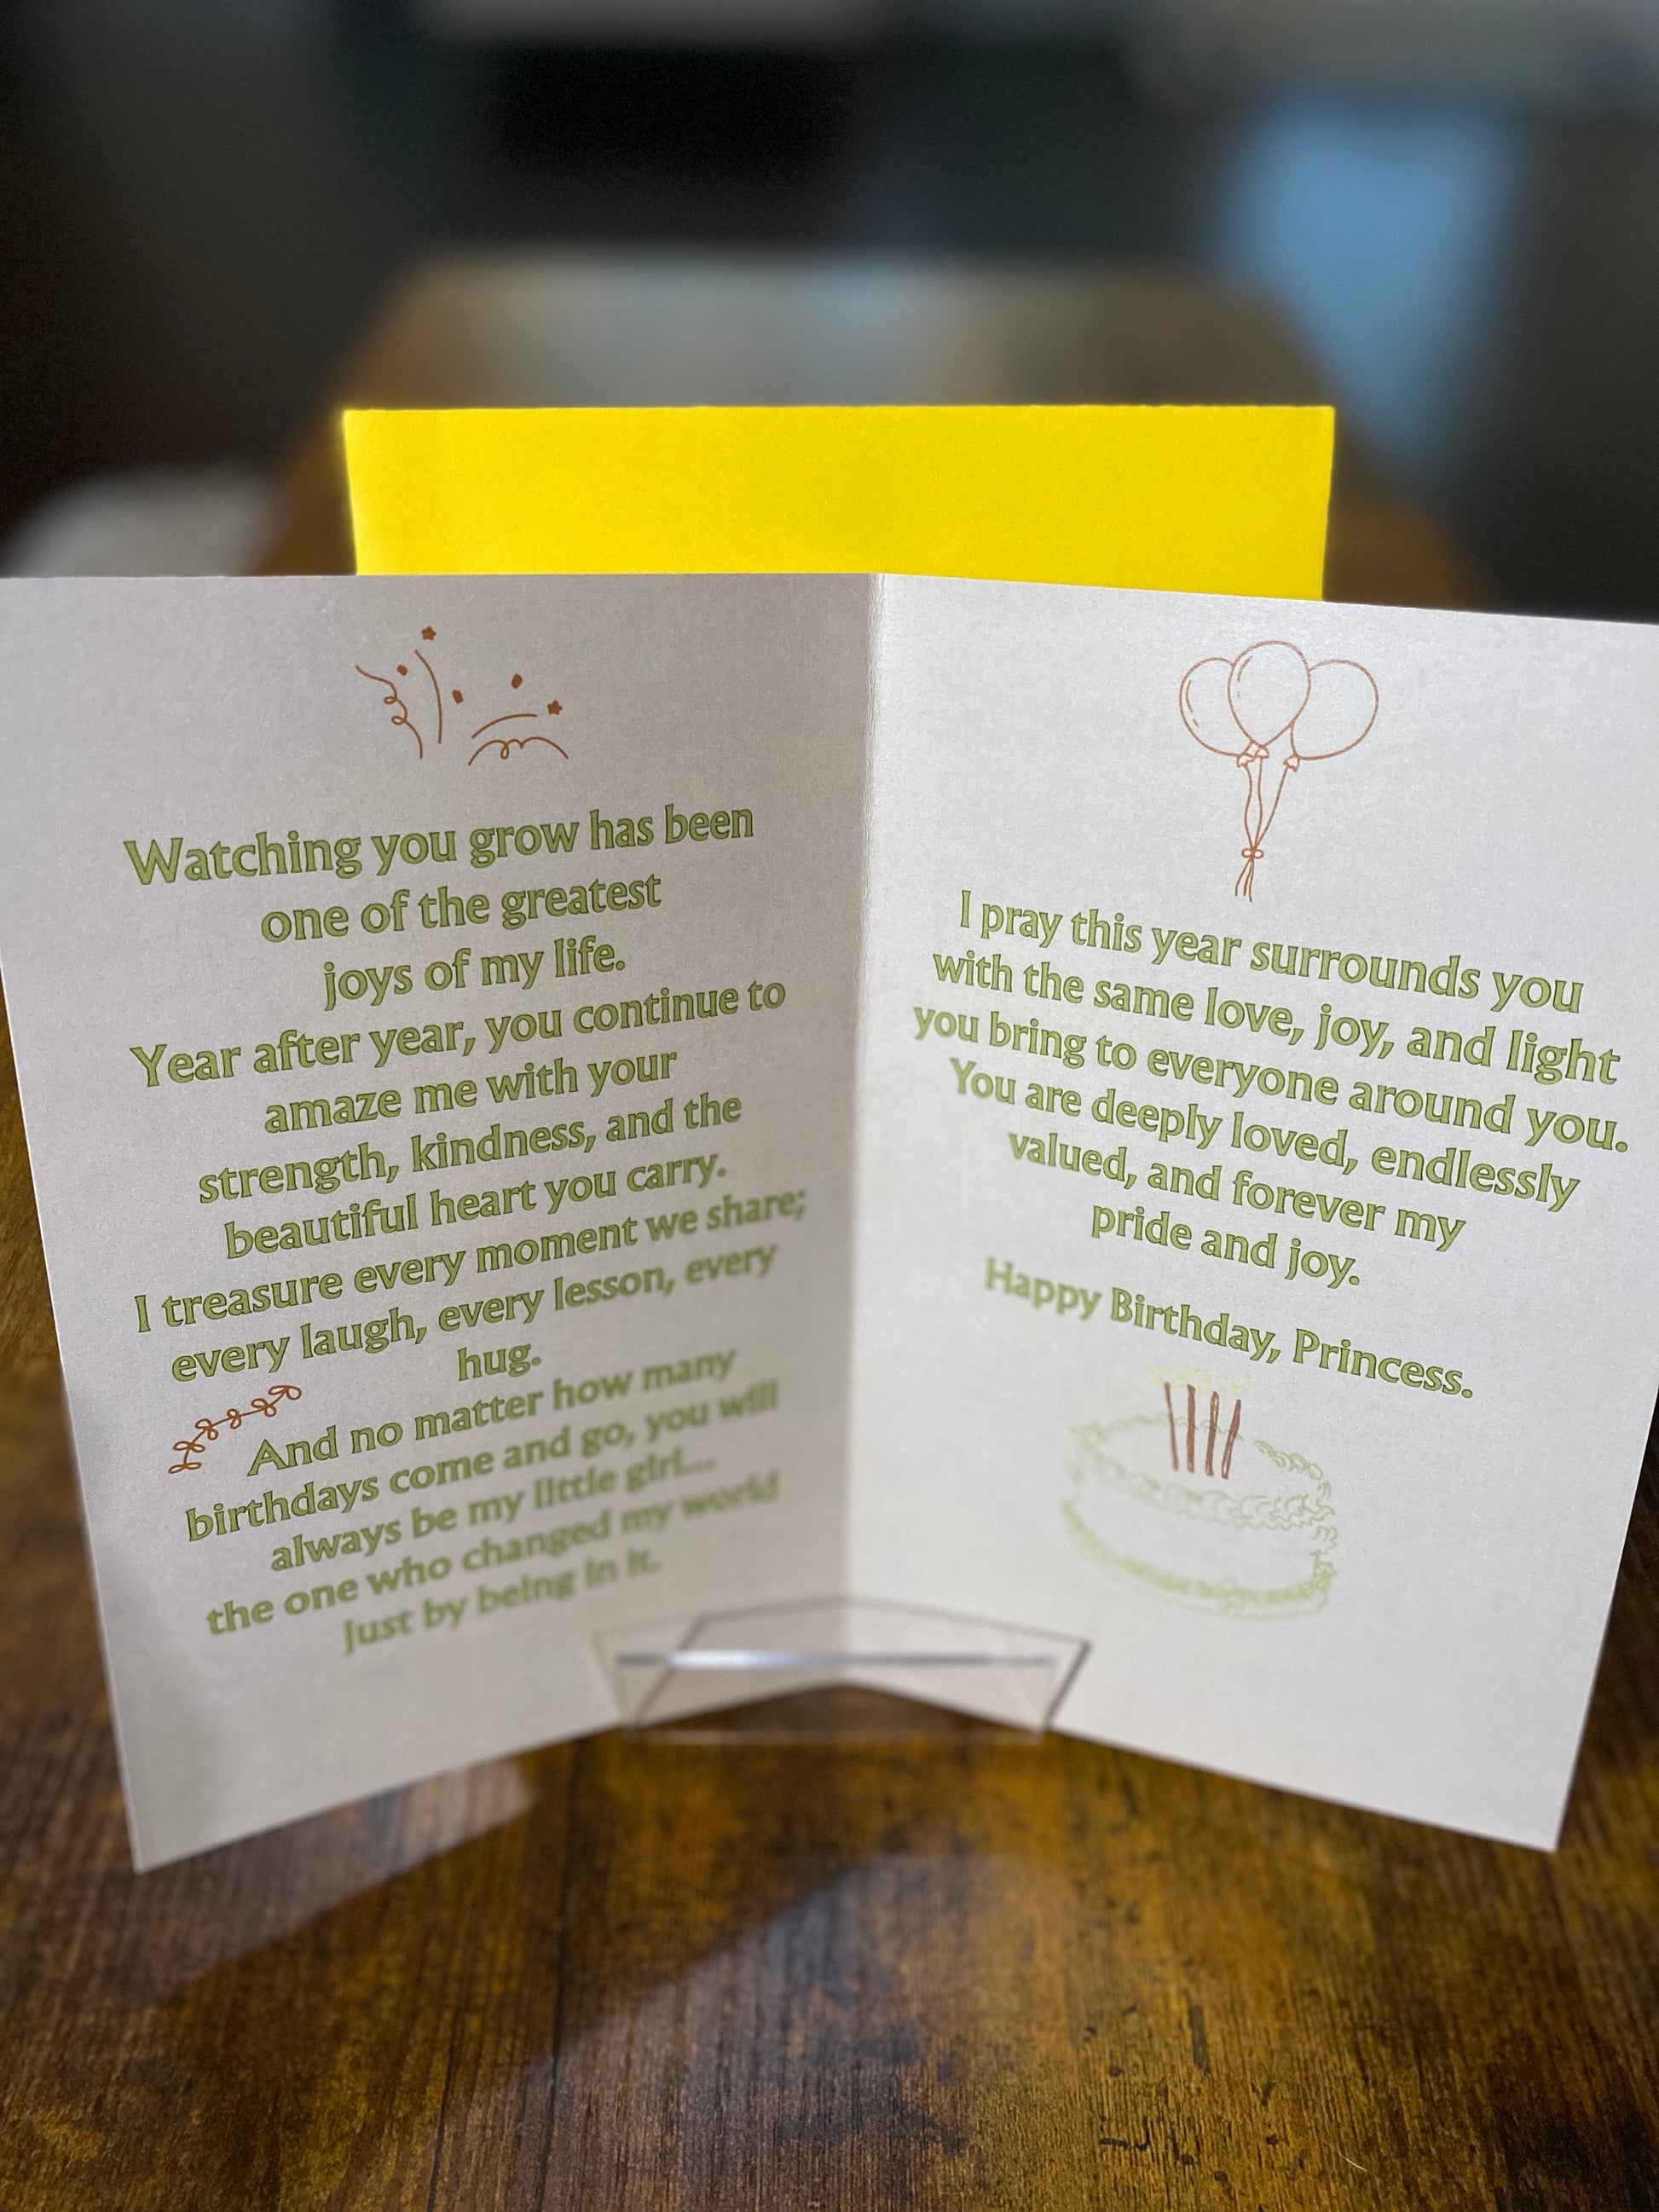 Watching you grow has been
one of the greatest
joys of my life.
Year after year, you continue to
amaze me with your
strength, kindness, and the
beautiful heart you carry.
I treasure every moment we share;
every laugh, every lesson, every
hug.
And no matter how many
birthdays come and go, you will
always be my little girl...
the one who changed my world
just by being in it.
I pray this year surrounds you
with the same love, joy, and light
you bring to everyone around you.
You are deeply loved, endlessly
valued, and forever my
pride and joy.
Happy Birthday, Princess.